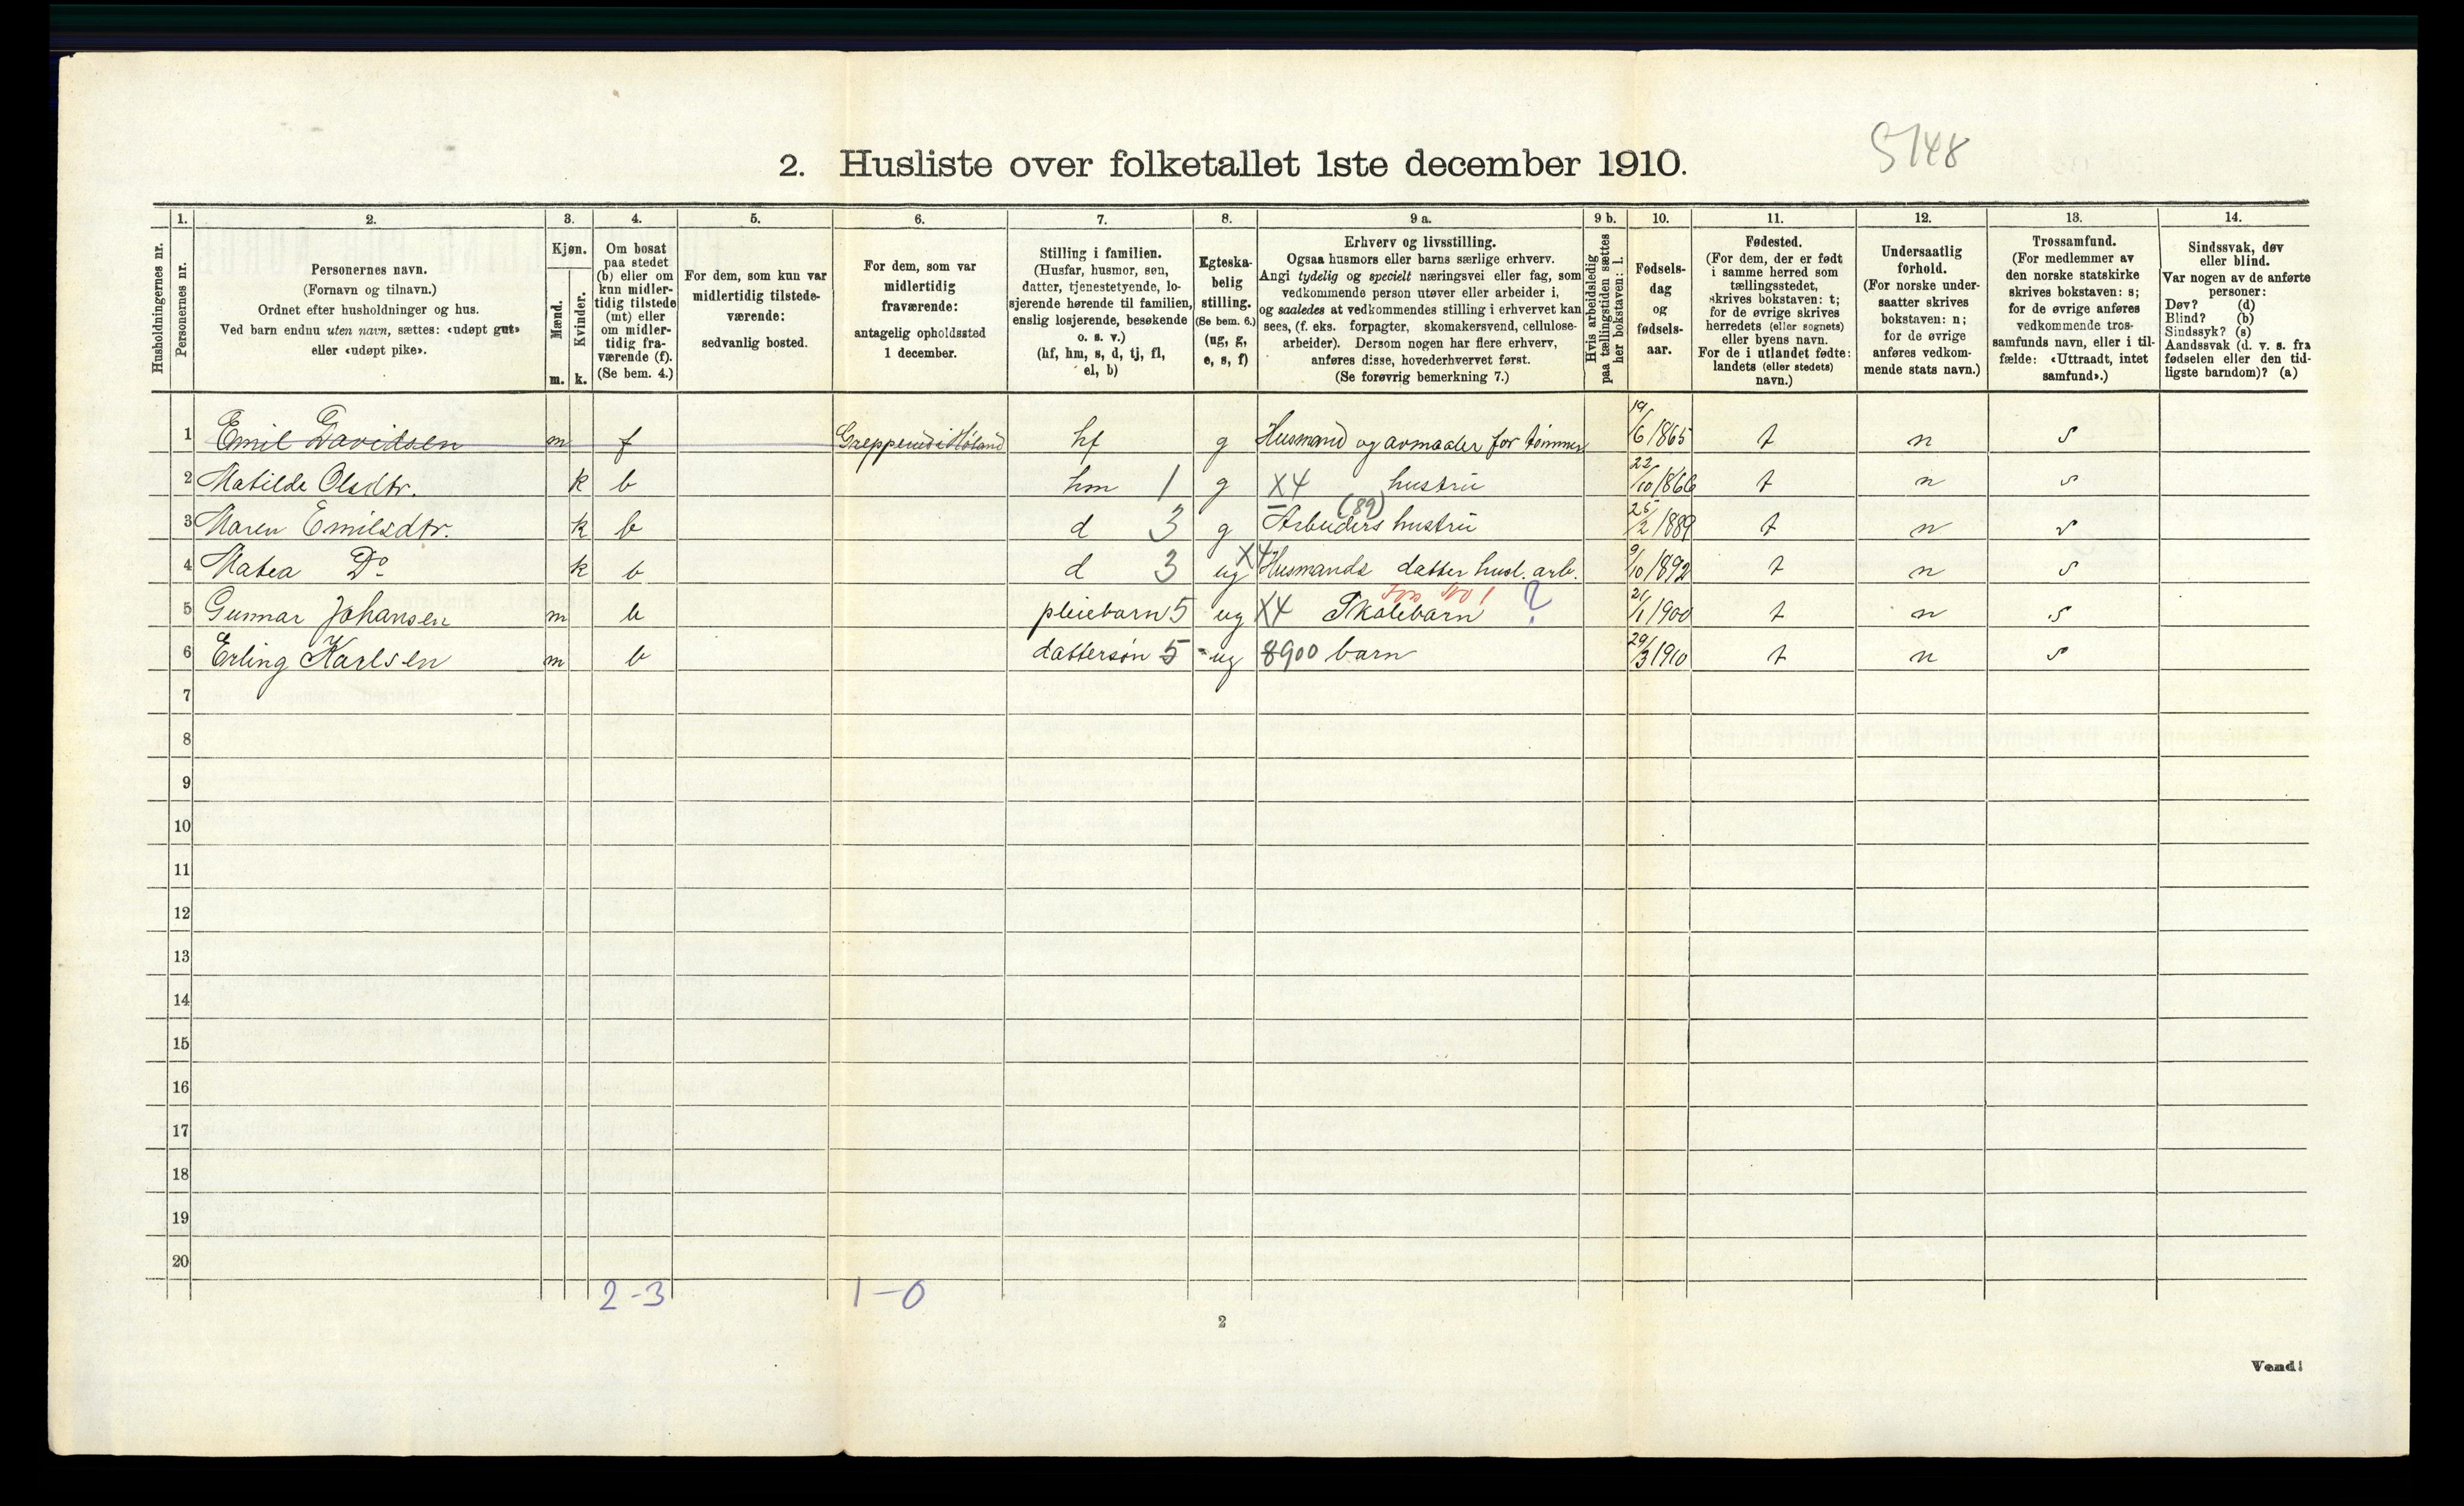 5148
2. Husliste over folketallet 1ste december 1910.
Husholdningernes nr.
1.
Personernes nr.
2.
Personernes navn.
(Fornavn og tilnavn.)
Ordnet efter husholdninger og hus.
Ved barn endnu uten navn, sættes: «udøpt gut»
eller «udøpt pike».
3.
Kjøn.
Mænd.
Kvinder.
m. k.
4.
Om bosat
paa stedet
(b) eller om
kun midler-
tidig tilstede
(mt) eller
om midler-
tidig fra-
værende (f).
(Se bem. 4.)
5.
For dem, som kun var
midlertidig tilstede-
værende:
sedvanlig bosted.
6.
For dem, som var
midlertidig
fraværende:
antagelig opholdssted
1 december.
7.
Stilling i familien.
(Husfar, husmor, søn,
datter, tjenestetyende, lo-
sjerende hørende til familien,
enslig losjerende, besøkende
o. s. v.)
(hf, hm, s, d, tj, fl,
el, b)
8.
Egteska-
belig
stilling.
(Se bem. 6.)
(ug, g,
e, s, f)
9 a.
Erhverv og livsstilling.
Ogsaa husmors eller barns særlige erhverv.
Angi tydelig og specielt næringsvei eller fag, som
vedkommende person utøver eller arbeider i,
og saaledes at vedkommendes stilling i erhvervet kan
sees, (f. eks. forpagter, skomakersvend, cellulose-
arbeider). Dersom nogen har flere erhverv,
anføres disse, hovederhvervet først.
(Se forøvrig bemerkning 7.)
9 b.
Hvis arbeidsledig
paa tællingstiden sættes
her bokstaven: l.
10.
Fødsels-
dag
og
fødsels-
aar.
11.
Fødested.
(For dem, der er født
i samme herred som
tællingsstedet,
skrives bokstaven: t;
for de øvrige skrives
herredets (eller sognets)
eller byens navn.
For de i utlandet fødte:
landets (eller stedets)
navn.)
12.
Undersaatlig
forhold.
(For norske under-
saatter skrives
bokstaven: n;
for de øvrige
anføres vedkom-
mende stats navn.)
13.
Trossamfund.
(For medlemmer av
den norske statskirke
skrives bokstaven: s;
for de øvrige anføres
vedkommende tros-
samfunds navn, eller i til-
fælde: «Uttraadt, intet
samfund».)
14.
Sindssvak, døv
eller blind.
Var nogen av de anførte
personer:
Døv? (d)
Blind? (b)
Sindssyk? (s)
Aandssvak (d. v. s. fra
fødselen eller den tid-
ligste barndom)? (a)
1 Emil Davidsen m f Grepperud i Høland hf g Husmand og avmaaler for tømmer 19/6 1865 t n s
2 Matilde Olsdtr. k b hm 1 g X4 hustru 22/10 1866 t n s
3 Maren Emilsdtr. k b d 3 g Arbeiders (89) hustru 25/2 1889 t n s
4 Matea Do k b d 3 ug X4 Husmands datter husl. arb. 9/10 1892 t n s
5 Gunnar Johansen m b pleiebarn 5 ug X4 Skolebarn ? 21/1 1900 t n s
6 Erling Karlsen m b dattersøn 5 ug 8900 barn 29/3 1910 t n s
7
8
9
10
11
12
13
14
15
16
17
18
19
20
2-3 1-0
2
Vend!